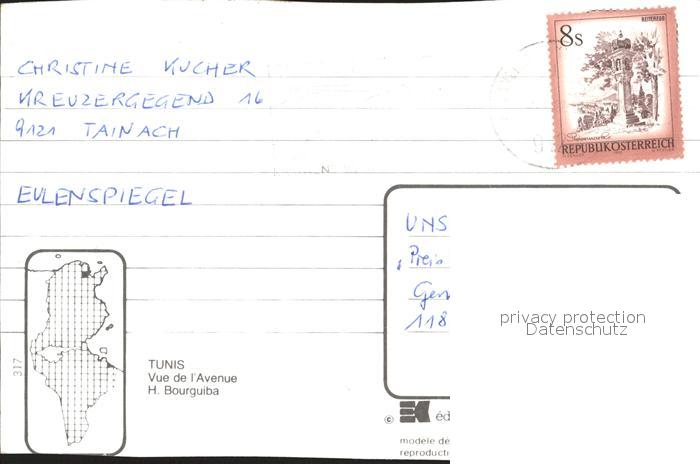 REITEREGG
8s
REPUBLIK ÖSTERREICH
CHRISTINE KUCHER
KREUZERGEGEND 16
9121 TAINACH
N
EULENSPIEGEL
UNS
"Preis
Gen
118
privacy protection
Datenschutz
317
TUNIS
Vue de l'Avenue
H. Bourguiba
© EK éd
modele dé
reproducti